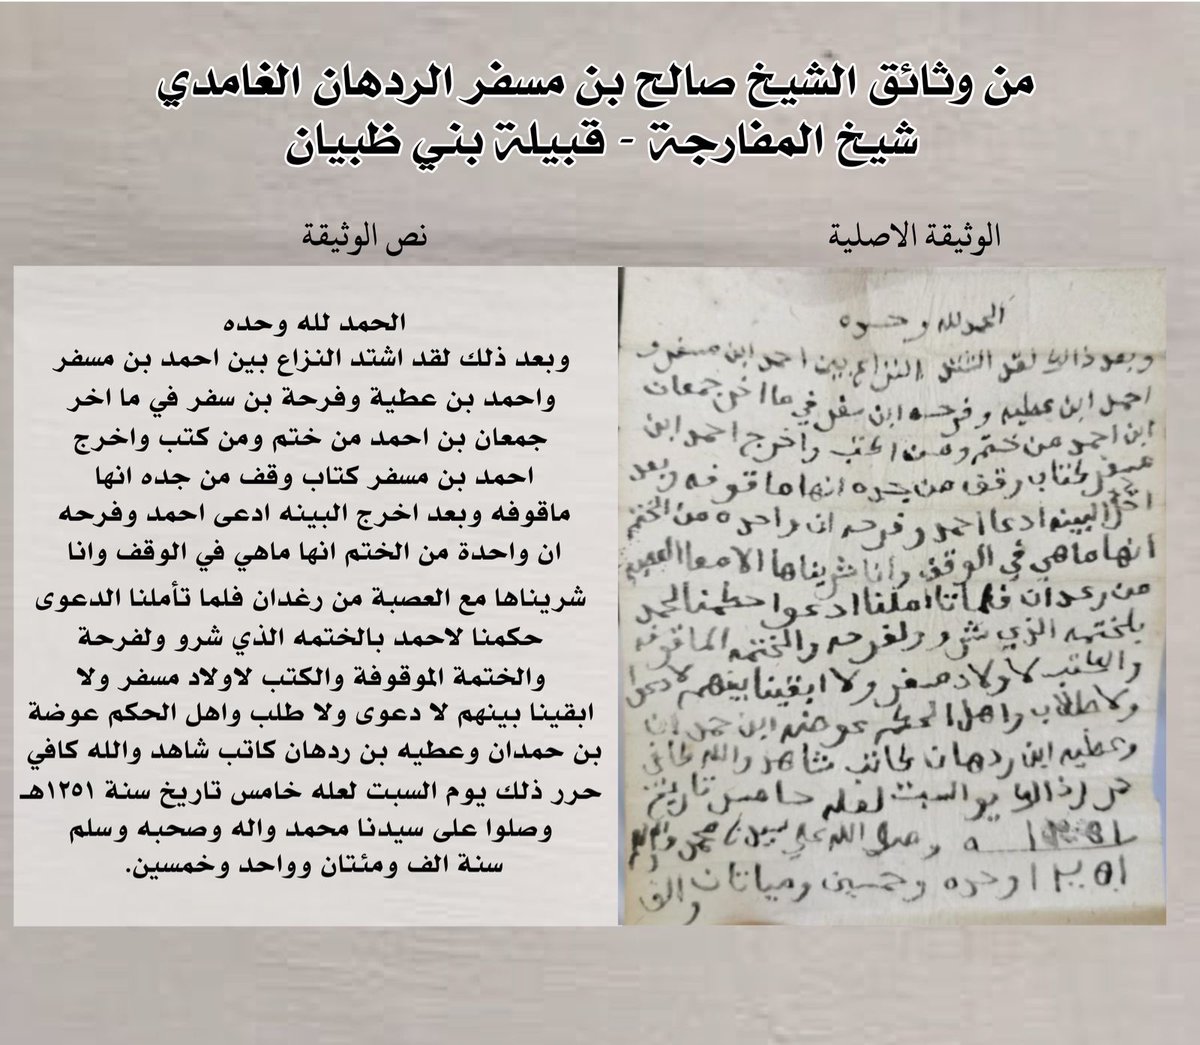 من وثائق الشيخ صالح بن مسفر الردهان الغامدي
شيخ المفارجة - قبيلة بني ظبيان
الوثيقة الاصلية
نص الوثيقة
الحمد لله وحده
وبعد ذالك لقد اشتد النزاع بين احمد ابن مسفر و
احمد ابن عطيه وفرحه ابن سفر في ما اخر جمعان
ابن احمد من ختم ومن الكتب واخرج احمد ابن
مسفر كتاب وقف من جده انها ماقوفه وبعد
اخرج البينه ادعا احمد وفرحه ان واحده من الختم
انها ماهي في الوقف وانا شريناها
من رغدان فلما تاملنا ادعوا حكمنا لحمد
بلختمه الذي شرو ولفرحه والختمه الماقوفه
والكتب لاولاد مسفر ولا ابقينا بينهم لا دعوا
ولا طلاب واهل الحكم عوضه ابن حمدان
وعطيه ابن ردهان كاتب شاهد والله كافي
حرر ذالك يوم السبت لعله خامس تاريخ
١٢٥١ ه وصلا الله على سيدنا محمد
١٢٥١ وحده وخمسين ومياتان والف
الحمد لله وحده
وبعد ذلك لقد اشتد النزاع بين احمد بن مسفر
واحمد بن عطية وفرحة بن سفر في ما اخر
جمعان بن احمد من ختم ومن كتب واخرج
احمد بن مسفر كتاب وقف من جده انها
ماقوفه وبعد اخرج البينه ادعى احمد وفرحه
ان واحدة من الختم انها ماهي في الوقف وانا
شريناها مع العصبة من رغدان فلما تأملنا الدعوى
حكمنا لاحمد بالختمه الذي شرو ولفرحة
والختمة الموقوفة والكتب لاولاد مسفر ولا
ابقينا بينهم لا دعوى ولا طلب واهل الحكم عوضة
بن حمدان وعطيه بن ردهان كاتب شاهد والله كافي
حرر ذلك يوم السبت لعله خامس تاريخ سنة ١٢٥١هـ
وصلوا على سيدنا محمد واله وصحبه وسلم
سنة الف ومئتان وواحد وخمسين.